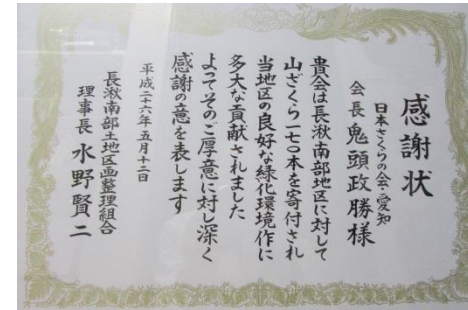 感謝状
日本さくらの会・愛知
会長 鬼頭政勝様
貴会は長湫南部地区に対して
山ざくら一七〇本を寄付され
当地区の良好な緑化環境作に
多大な貢献されました
よってそのご厚意に対し深く
感謝の意を表します
平成二十六年五月十二日
長湫南部土地区画整理組合
理事長 水野賢二